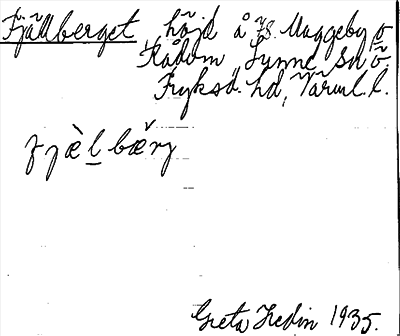 Fjällberget, höjd å Zs. Maggeby o
Rådom, Sunne sn Ö.
Fryksd. hd, Värml. l.
fjæ̀l bæ̌rj
Greta Hedin 1935.